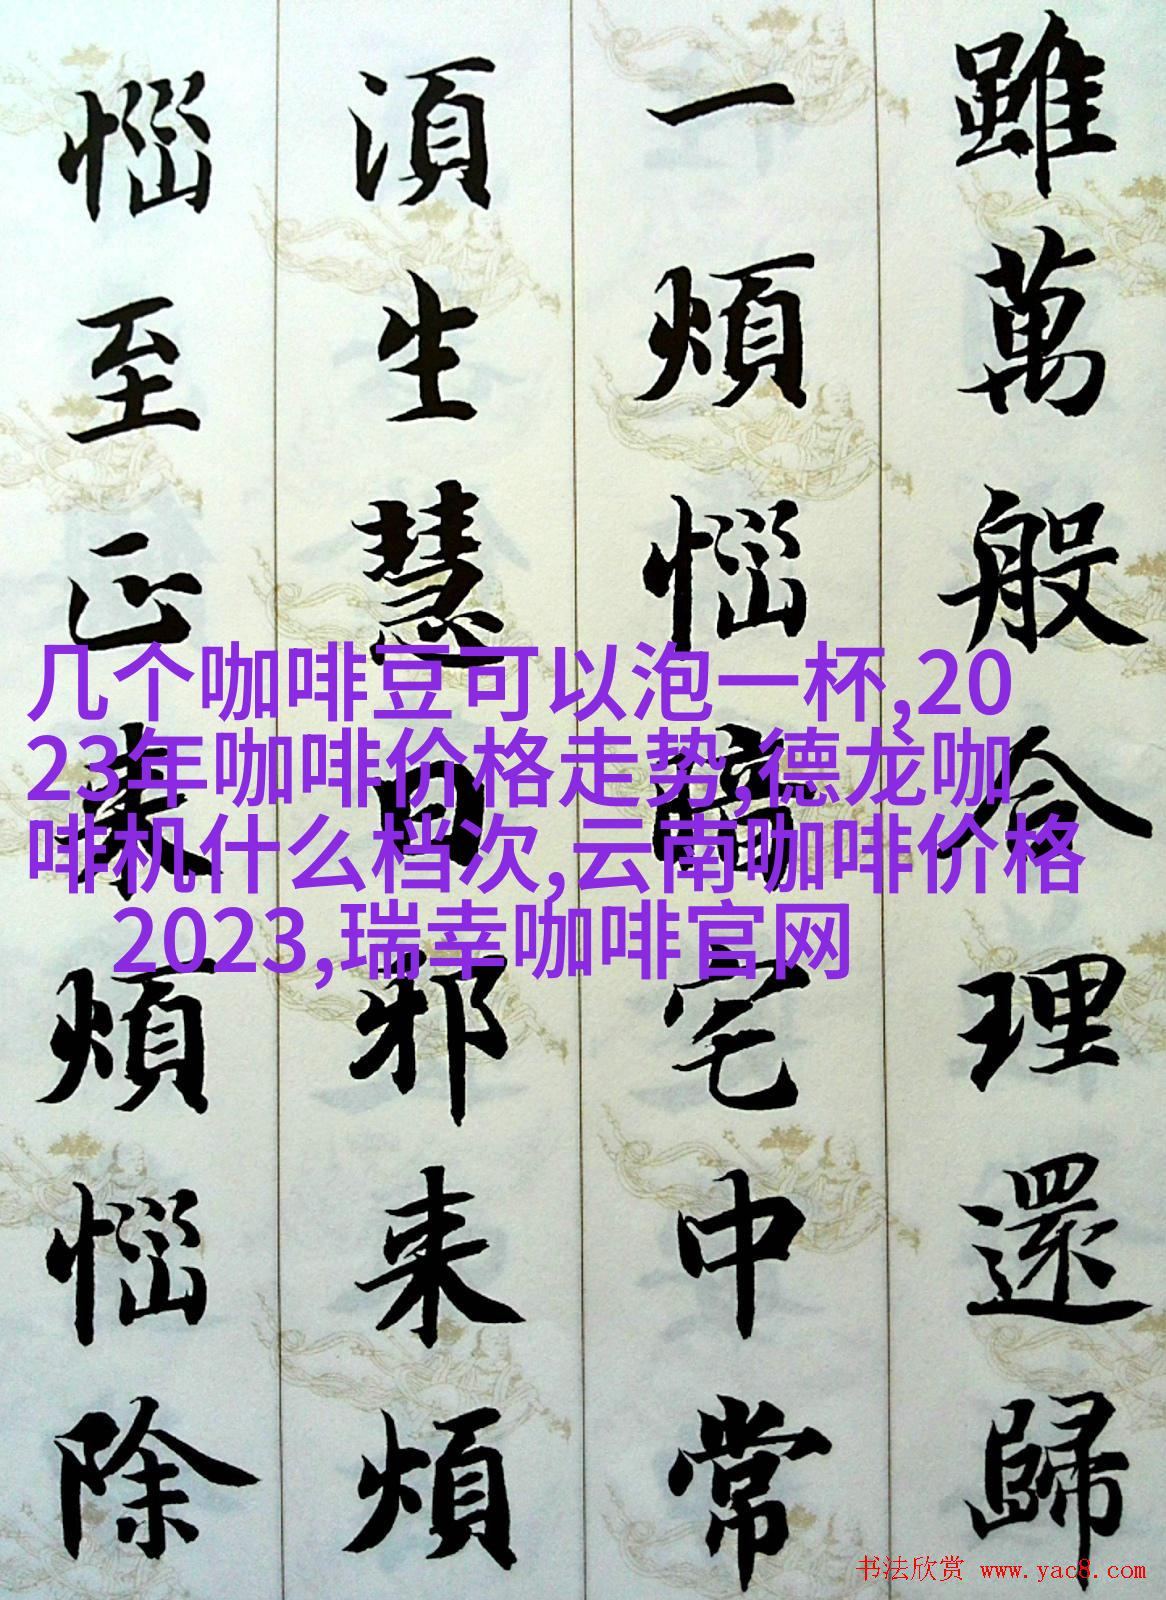 雖萬般合理還歸
一煩惱宅中常
湏生慧日邪来煩
惱至正来煩惱除
几个咖啡豆可以泡一杯,20
23年咖啡价格走势,德龙咖
啡机什么档次,云南咖啡价格
2023,瑞幸咖啡官网
书法欣赏 www.yac8.com